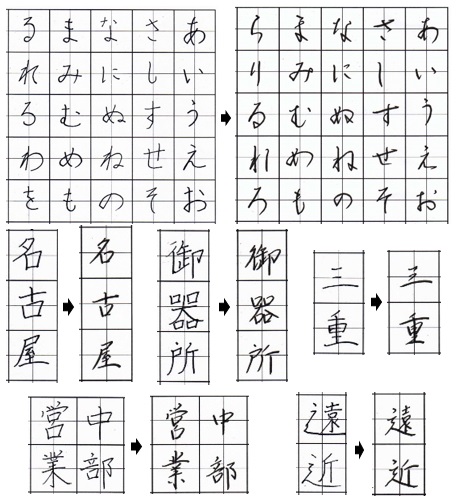 あいうえお
さしすせそ
なにぬねの
まみむめも
るれろわを
あいうえお
さしすせそ
なにぬねの
まみむめも
らりるれろ
名古屋
名古屋
御器所
御器所
三重
三重
中部
営業
中部
営業
遠近
遠近